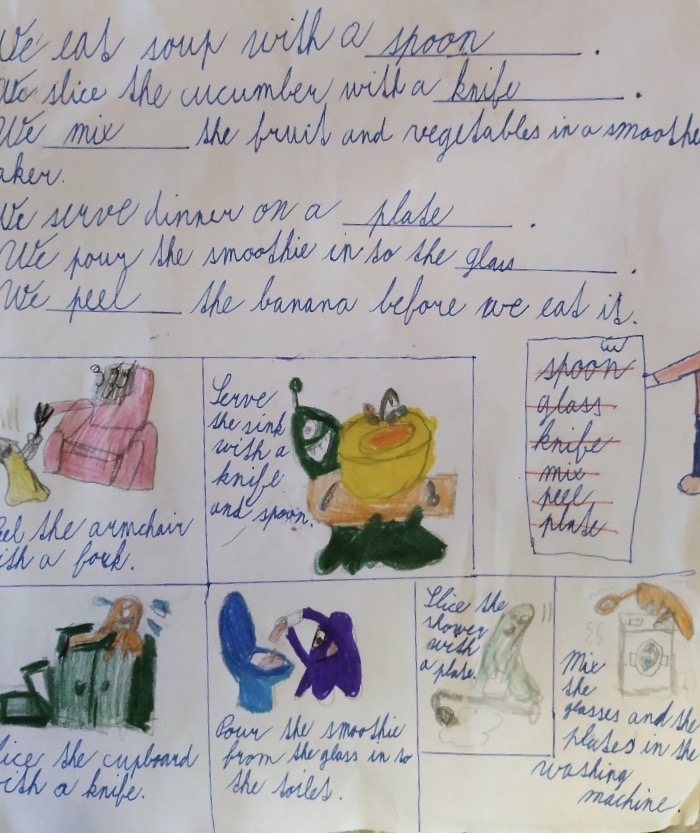 We eat soup with a spoon.
We slice the cucumber with a knife.
We mix the fruit and vegetables in a smoothe
aker.
We serve dinner on a plate.
We pour the smoothie in to the glass.
We peel the banana before we eat it.
spoon
glass
knife
mix
peel
plate
eel the armchair
ith a fork.
Serve
the sink
with a
knife
and spoon.
lice the cupboard
ith a knife.
Pour the smoothie
from the glass in to
the toilet.
Slice the
shower
with
a plate.
Mix
the
glasses and the
plates in the
washing
machine.